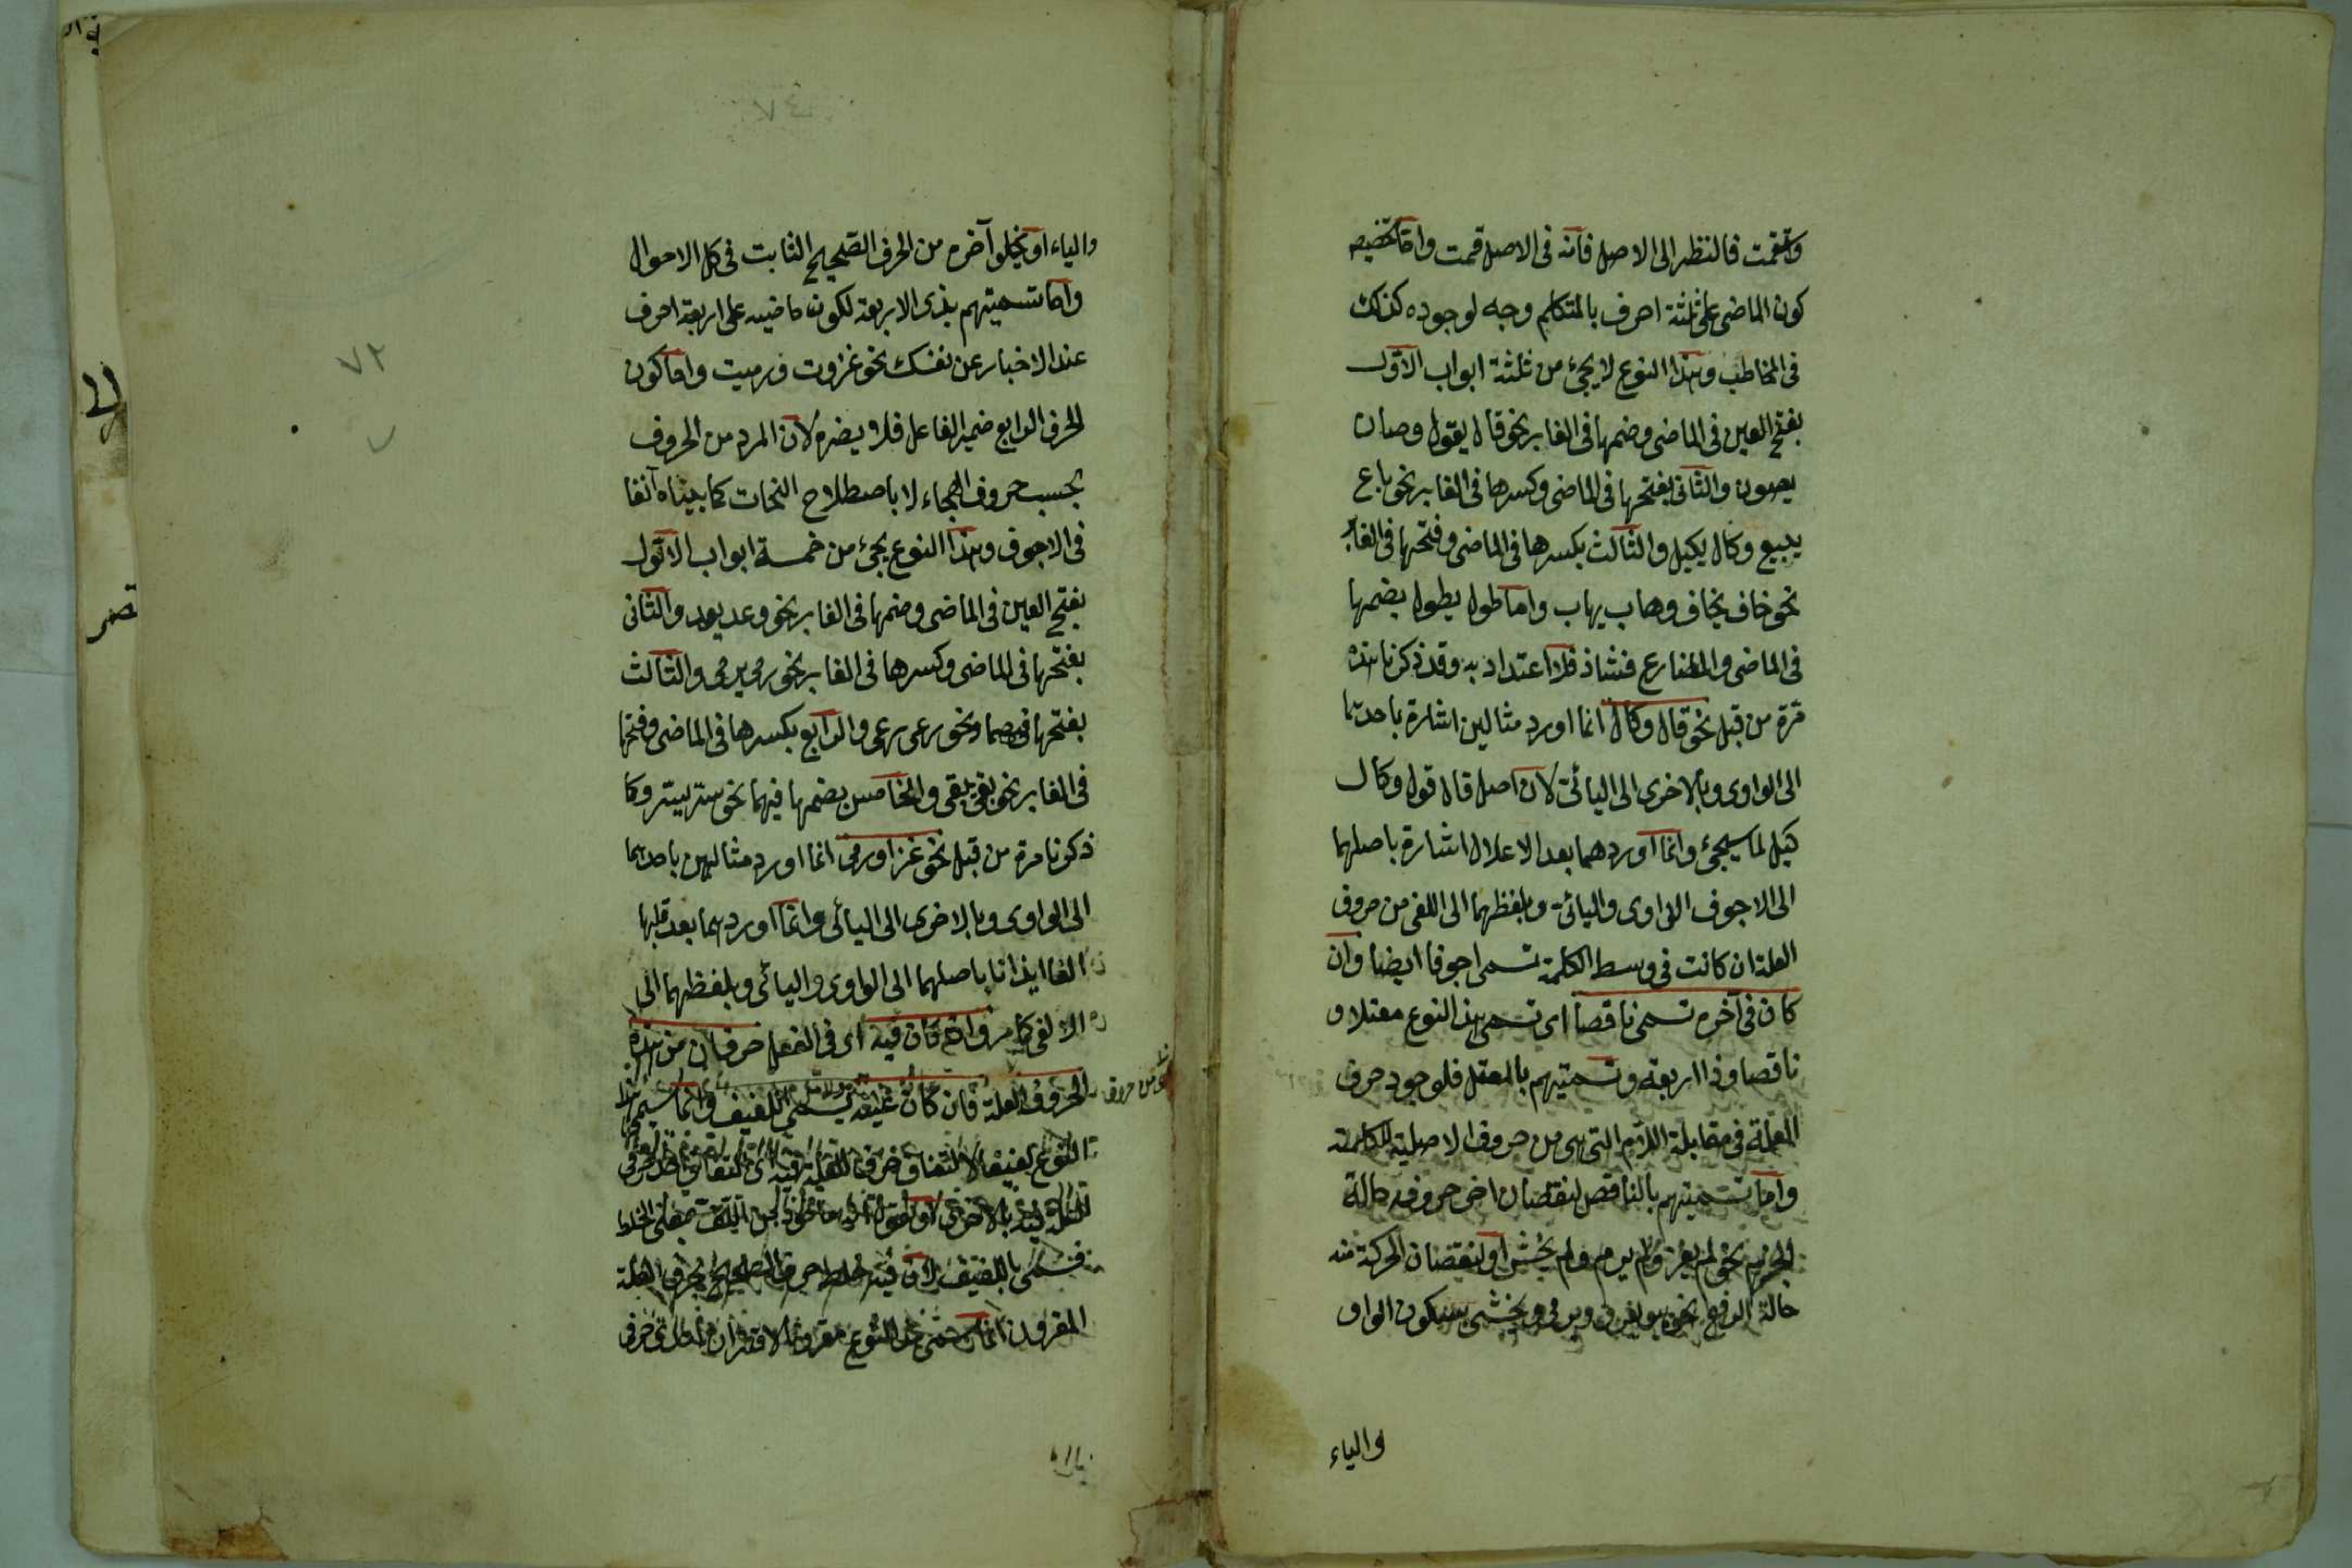 وقمت فالنظر الى الاصل فانه فى الاصل قمت واما تخصيص
كون الماضى على ثلثة احرف بالمتكلم وجه لوجوده كذلك
فى المخاطب وهذا النوع لا يجئ من ثلثة ابواب الاول
بفتح العين فى الماضى وضمها فى الغابر نحو قال يقول وصان
يصون والثانى بفتحها فى الماضى وكسرها فى الغابر نحو باع
يبيع وكال يكيل والثالث بكسرها فى الماضى وفتحها فى الغابر
نحو خاف يخاف وهاب يهاب واما طول يطول بضمها
فى الماضى والمضارع فشاذ فلا اعتداد به وقد ذكرنا هذه
مرة من قبل نحو قال وكال انما اورد مثالين اشارة باحدهما
الى الواوى وبالاخرى الى اليائى لان اصل قال قول وكال
كيل لما سيجئ وانما اوردهما بعد الاعلال اشارة باصلهما
الى الاجوف الواوى واليائى وبلفظهما الى اللفى من حروف
العلة ان كانت فى وسط الكلمة تسمى اجوفا ايضا وان
كان فى آخره تسمى ناقصا اى تسمى هذا النوع معتلا و
ناقصا وذا اربعة وتسميتهم بالمعتل فلوجود حرف
العلة فى مقابلة اللام التى هى من حروف الاصلية للكلمة
واما تسميتهم بالناقص لنقصان اخر حروفه حالة
الجزم نحو لم يغز ولم يرم ولم يخش او لنقصان الحركة منه
حالة الرفع نحو يغزو ويرمى ويخشى بسكون الواو
والياء
والياء او يخلو آخره من الحرف الصحيح الثابت فى كل الاحوال
واما تسميتهم بذى الاربعة لكون ماضيه على اربعة احرف
عند الاخبار عن نفسك نحو غزوت ورميت واما كون
الحرف الرابع ضمير الفاعل فلا يضره لان المرد من الحروف
بحسب حروف الهجاء لا باصطلاح النحات كما بيناه آنفا
فى الاجوف وهذا النوع يجئ من خمسة ابواب الاول
بفتح العين فى الماضى وضمها فى الغابر نحو وعد يعد والثانى
بفتحها فى الماضى وكسرها فى الغابر نحو رمى يرمى والثالث
بفتحها فيهما ونحو رعى يرعى والرابع بكسرها فى الماضى وفتحها
فى الغابر نحو بقى يبقى والخامس بضمها فيهما نحو سرو يسرو كما
ذكرنا مرة من قبل نحو غزا ورمى انما اورد مثالين باحدهما
الى الواوى وبالاخرى الى اليائى وانما اوردهما بعد قلبها
الفا ايذانا باصلهما الى الواوى واليائى وبلفظهما الى
الالفى كما مر وان كان فيه اى فى الفعل حرفان من هذه
الحروف العلة فان كان عينه ولامه يسمى اللفيف وانما سمى هذا
النوع لفيفا لالتفاف حرفى العلة فيه
فسمى باللفيف لان فيه خلط حرف الصحيح بحرف العلة
المقرون انما سمى هذا النوع مقرونا لاقتران حرفى
٧٢